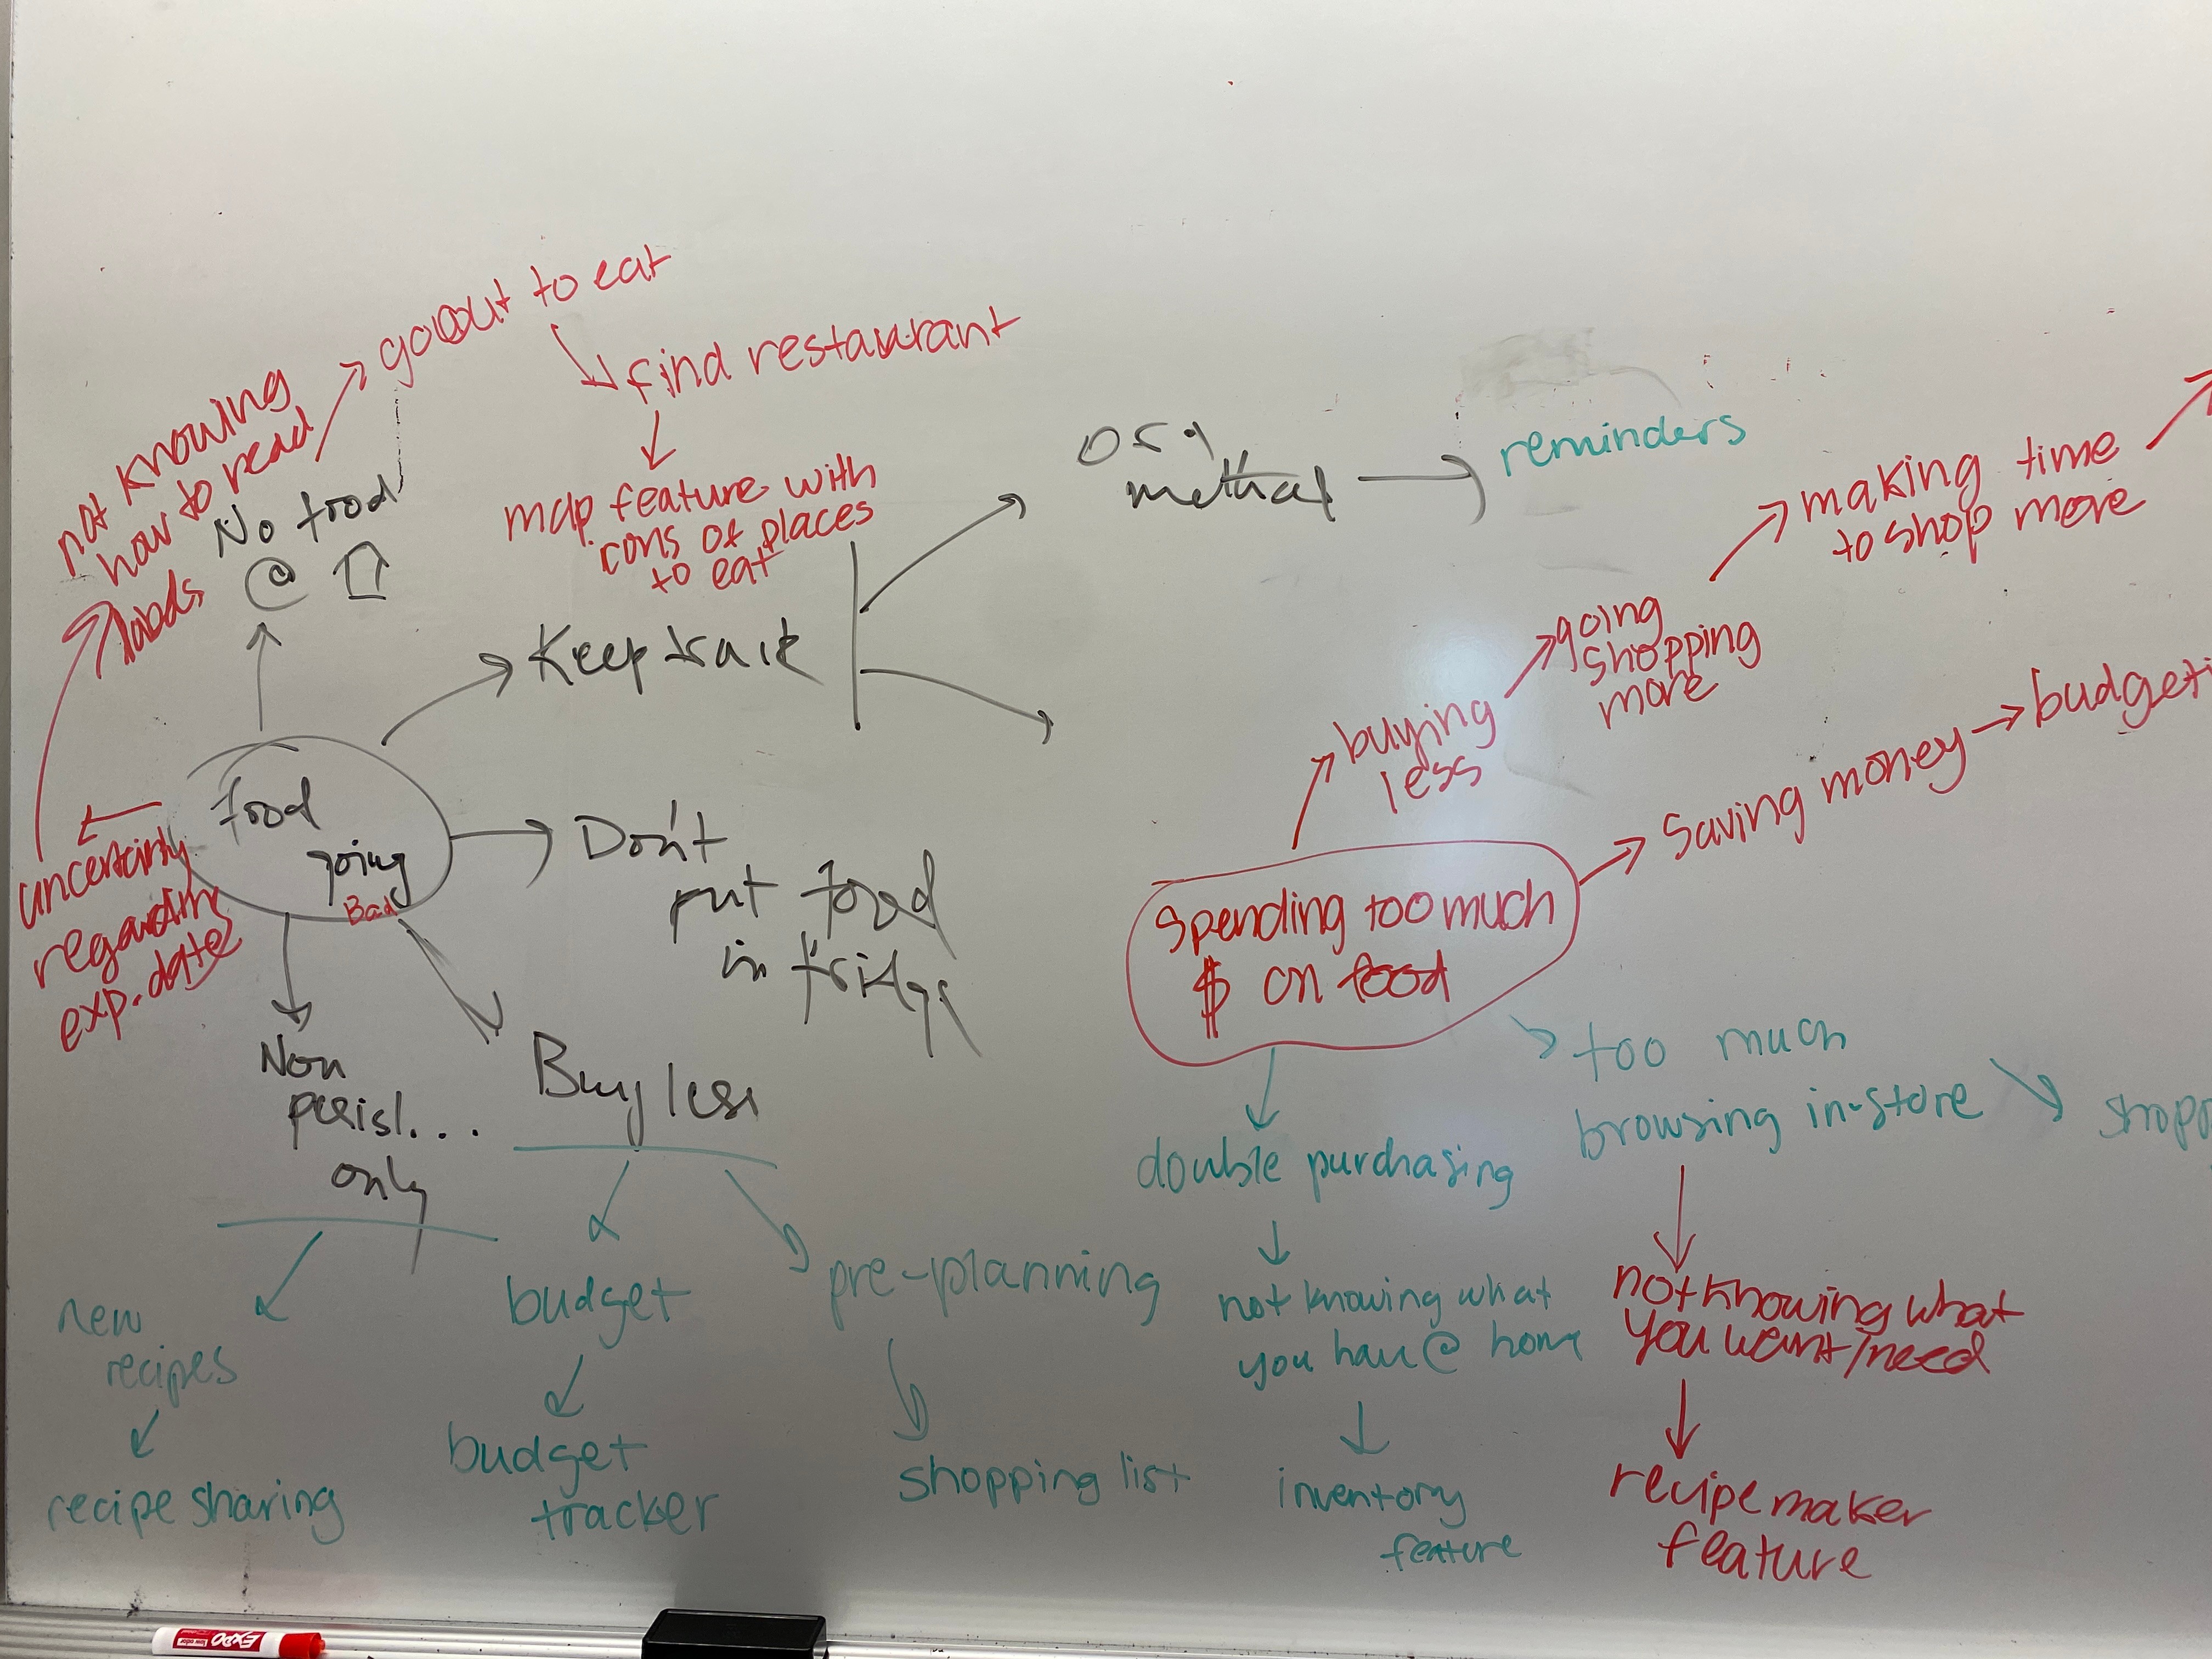 go out to eat
find restaurant
map feature with
icons of places
to eat
not knowing
how to read
labels
No food
@
Keep track
org
method
reminders
making time
to shop more
going
shopping
more
buying
less
Saving money
food
going
Bad
uncertainty
regarding
exp. date
Don't
put food
in fridge
Spending too much
$ on food
Non
perish...
only
Buy less
too much
browsing in-store
double purchasing
new
recipes
recipe sharing
budget
budget
tracker
pre-planning
shopping list
not knowing what
you have @ home
inventory
feature
not knowing what
you want/need
recipe maker
feature
EXPO
low odor